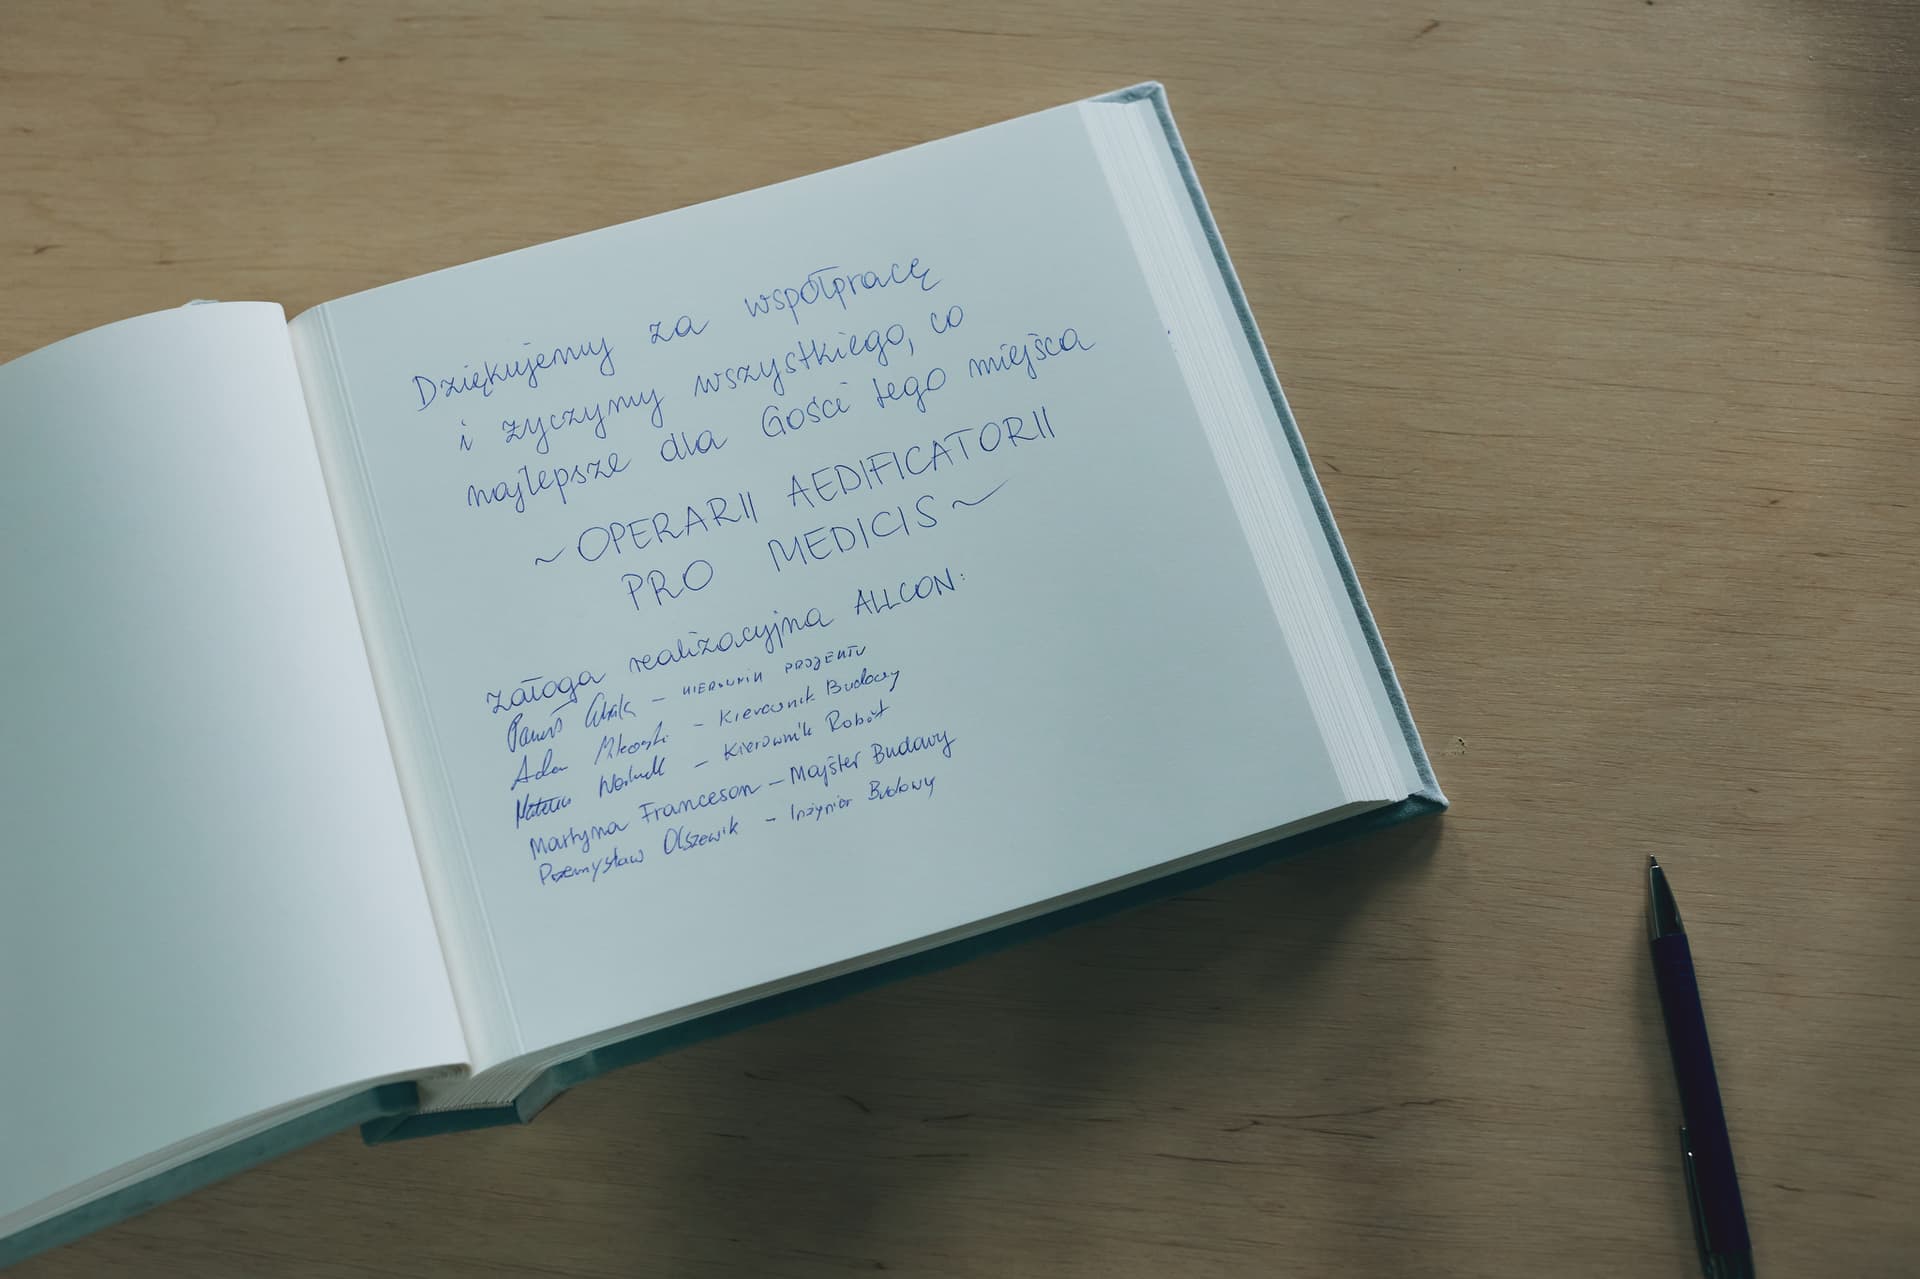 Dziękujemy za współpracę
i życzymy wszystkiego, co
najlepsze dla Gości tego miejsca
~OPERARII AEDIFICATORII
PRO MEDICIS~
załoga realizacyjna ALLCON:
– KIEROWNIK PROJEKTU
Adam – Kierownik Budowy
Mateusz – Kierownik Robót
Martyna Franceson – Majster Budowy
Przemysław Olszewik – Inżynier Budowy